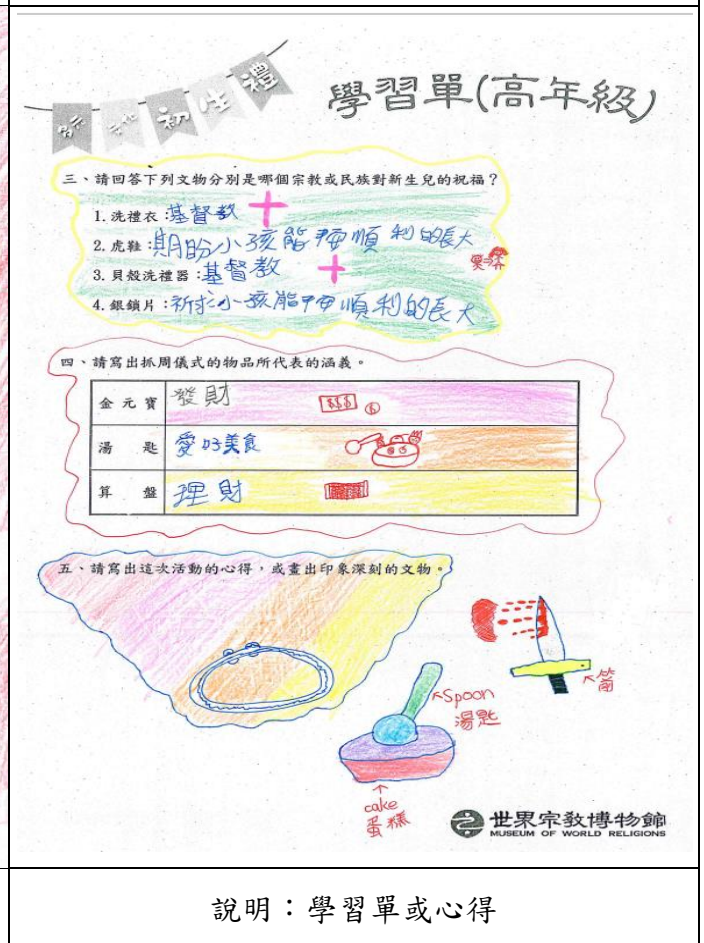 初生禮
學習單(高年級)
三、請回答下列文物分別是哪個宗教或民族對新生兒的祝福?
1. 洗禮衣:基督教
2. 虎鞋:期盼小孩能平安順利的長大
3. 貝殼洗禮器:基督教
4. 銀鎖片:祈求小孩能平安順利的長大
四、請寫出抓周儀式的物品所代表的涵義。
金元寶 發財 $$$
湯匙 愛好美食
算盤 理財
五、請寫出這次活動的心得,或畫出印象深刻的文物。
Spoon
湯匙
cake
蛋糕
世界宗教博物館
MUSEUM OF WORLD RELIGIONS
說明:學習單或心得